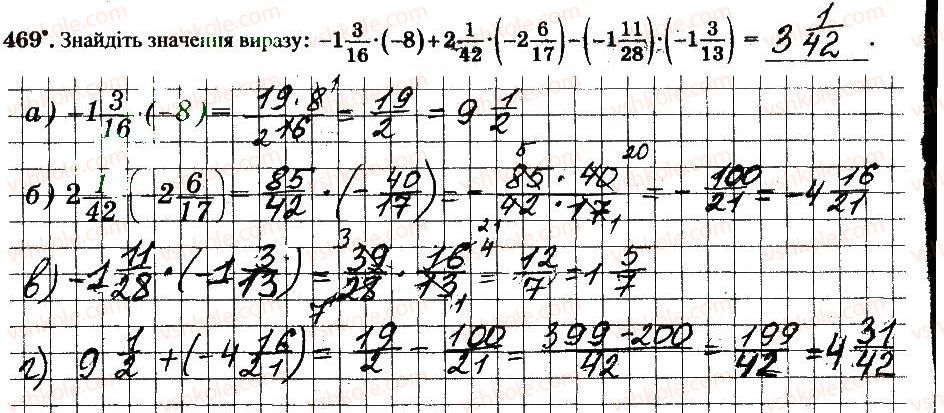 469°. Знайдіть значення виразу: $-1\frac{3}{16}\cdot(-8)+2\frac{1}{42}\cdot\left(-2\frac{6}{17}\right)-\left(-1\frac{11}{28}\right)\cdot\left(-1\frac{3}{13}\right)=3\frac{1}{42}$.
а) $-1\frac{3}{16}\cdot(-8)=\frac{19\cdot 8^{1}}{_{2}16}=\frac{19}{2}=9\frac{1}{2}$
б) $2\frac{1}{42}\cdot\left(-2\frac{6}{17}\right)=\frac{85}{42}\cdot\left(-\frac{40}{17}\right)=-\frac{^{5}85\cdot 40^{20}}{_{21}42\cdot 17_{1}}=-\frac{100}{21}=-4\frac{16}{21}$
в) $-1\frac{11}{28}\cdot\left(-1\frac{3}{13}\right)=\frac{^{3}39}{_{7}28}\cdot\frac{16^{4}}{13_{1}}=\frac{12}{7}=1\frac{5}{7}$
г) $9\frac{1}{2}+\left(-4\frac{16}{21}\right)=\frac{19}{2}-\frac{100}{21}=\frac{399-200}{42}=\frac{199}{42}=4\frac{31}{42}$